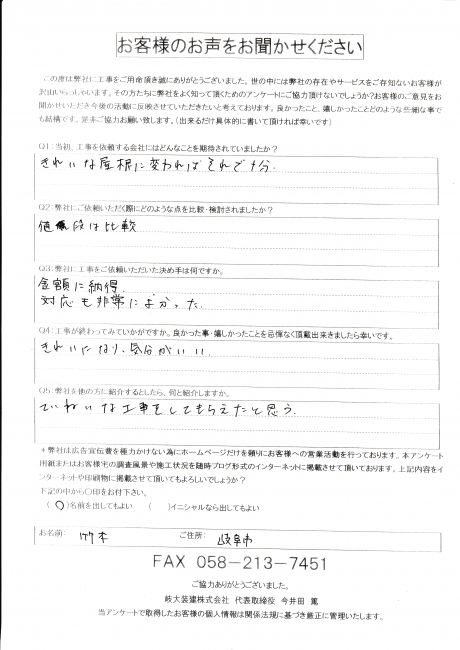 お客様のお声をお聞かせください
この度は弊社に工事をご用命頂き誠にありがとうございました。世の中には弊社の存在やサービスをご存知ないお客様が
沢山いらっしゃいます。その方たちに弊社をよく知って頂くためのアンケートにご協力頂けないでしょうか?お客様のご意見をお
聞かせいただき今後の活動に反映させていただきたいと考えております。良かったこと、嬉しかったことどのような些細な事で
も結構です。是非ご協力お願い致します。(出来るだけ具体的に書いて頂ければ幸いです)
Q1:当初、工事を依頼する会社にはどんなことを期待されていましたか?
きれいな屋根に変わればそれで十分.
Q2:弊社にご依頼いただく際にどのような点を比較・検討されましたか?
値段は比較
Q3:弊社に工事をご依頼いただいた決め手は何ですか。
金額に納得.
対応も非常によかった.
Q4:工事が終わってみていかがですか。良かった事・嬉しかったことを忌憚なく頂戴出来きましたら幸いです。
きれいになり、気分がいい.
Q5:弊社を他の方に紹介するとしたら、何と紹介しますか。
ていねいな工事をしてもらえたと思う.
*弊社は広告宣伝費を極力かけない為にホームページだけを頼りにお客様への営業活動を行っております。本アンケート
用紙またはお客様宅の調査風景や施工状況を随時ブログ形式のインターネットに掲載させて頂いております。上記内容をイ
ンターネットや印刷物に掲載させて頂いてもよろしいでしょうか?
下記の中から〇印をお付下さい。
(〇)名前を出してもよい ( )イニシャルなら出してもよい
お名前: 竹本 ご住所: 岐阜市
FAX 058-213-7451
ご協力ありがとうございました。
岐大装建株式会社 代表取締役 今井田 篤
当アンケートで取得したお客様の個人情報は関係法規に基づき厳正に管理いたします。